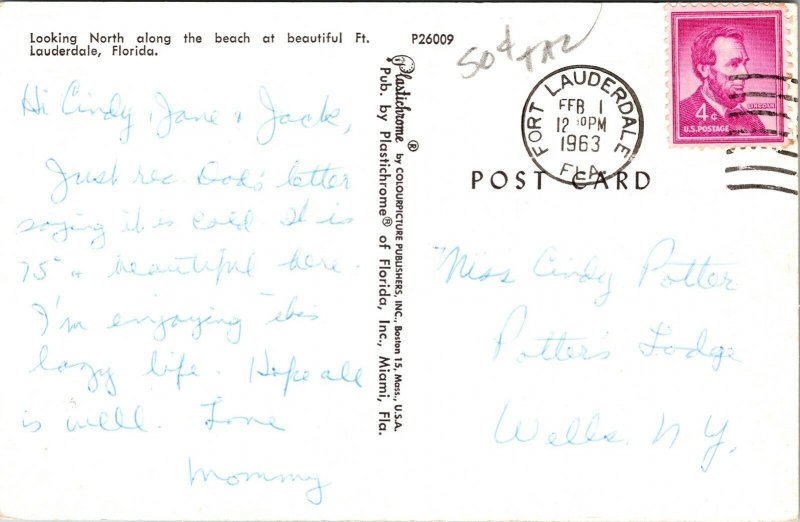 Looking North along the beach at beautiful Ft.
Lauderdale, Florida.
P26009
50¢ TAX
Hi Cindy, Jane & Jack,
Just rec Dad's letter
saying it is cold. It is
75° & beautiful here.
I'm enjoying this
lazy life. Hope all
is well. Love
Mommy
Plastichrome® by COLOURPICTURE PUBLISHERS, INC., Boston 15, Mass., U.S.A.
Pub. by Plastichrome® of Florida, Inc., Miami, Fla.
FORT LAUDERDALE
FEB 1
12 30PM
1963
FLA.
LINCOLN
4¢
U.S. POSTAGE
POST CARD
Miss Cindy Potter
Potter's Lodge
Wells. N Y.